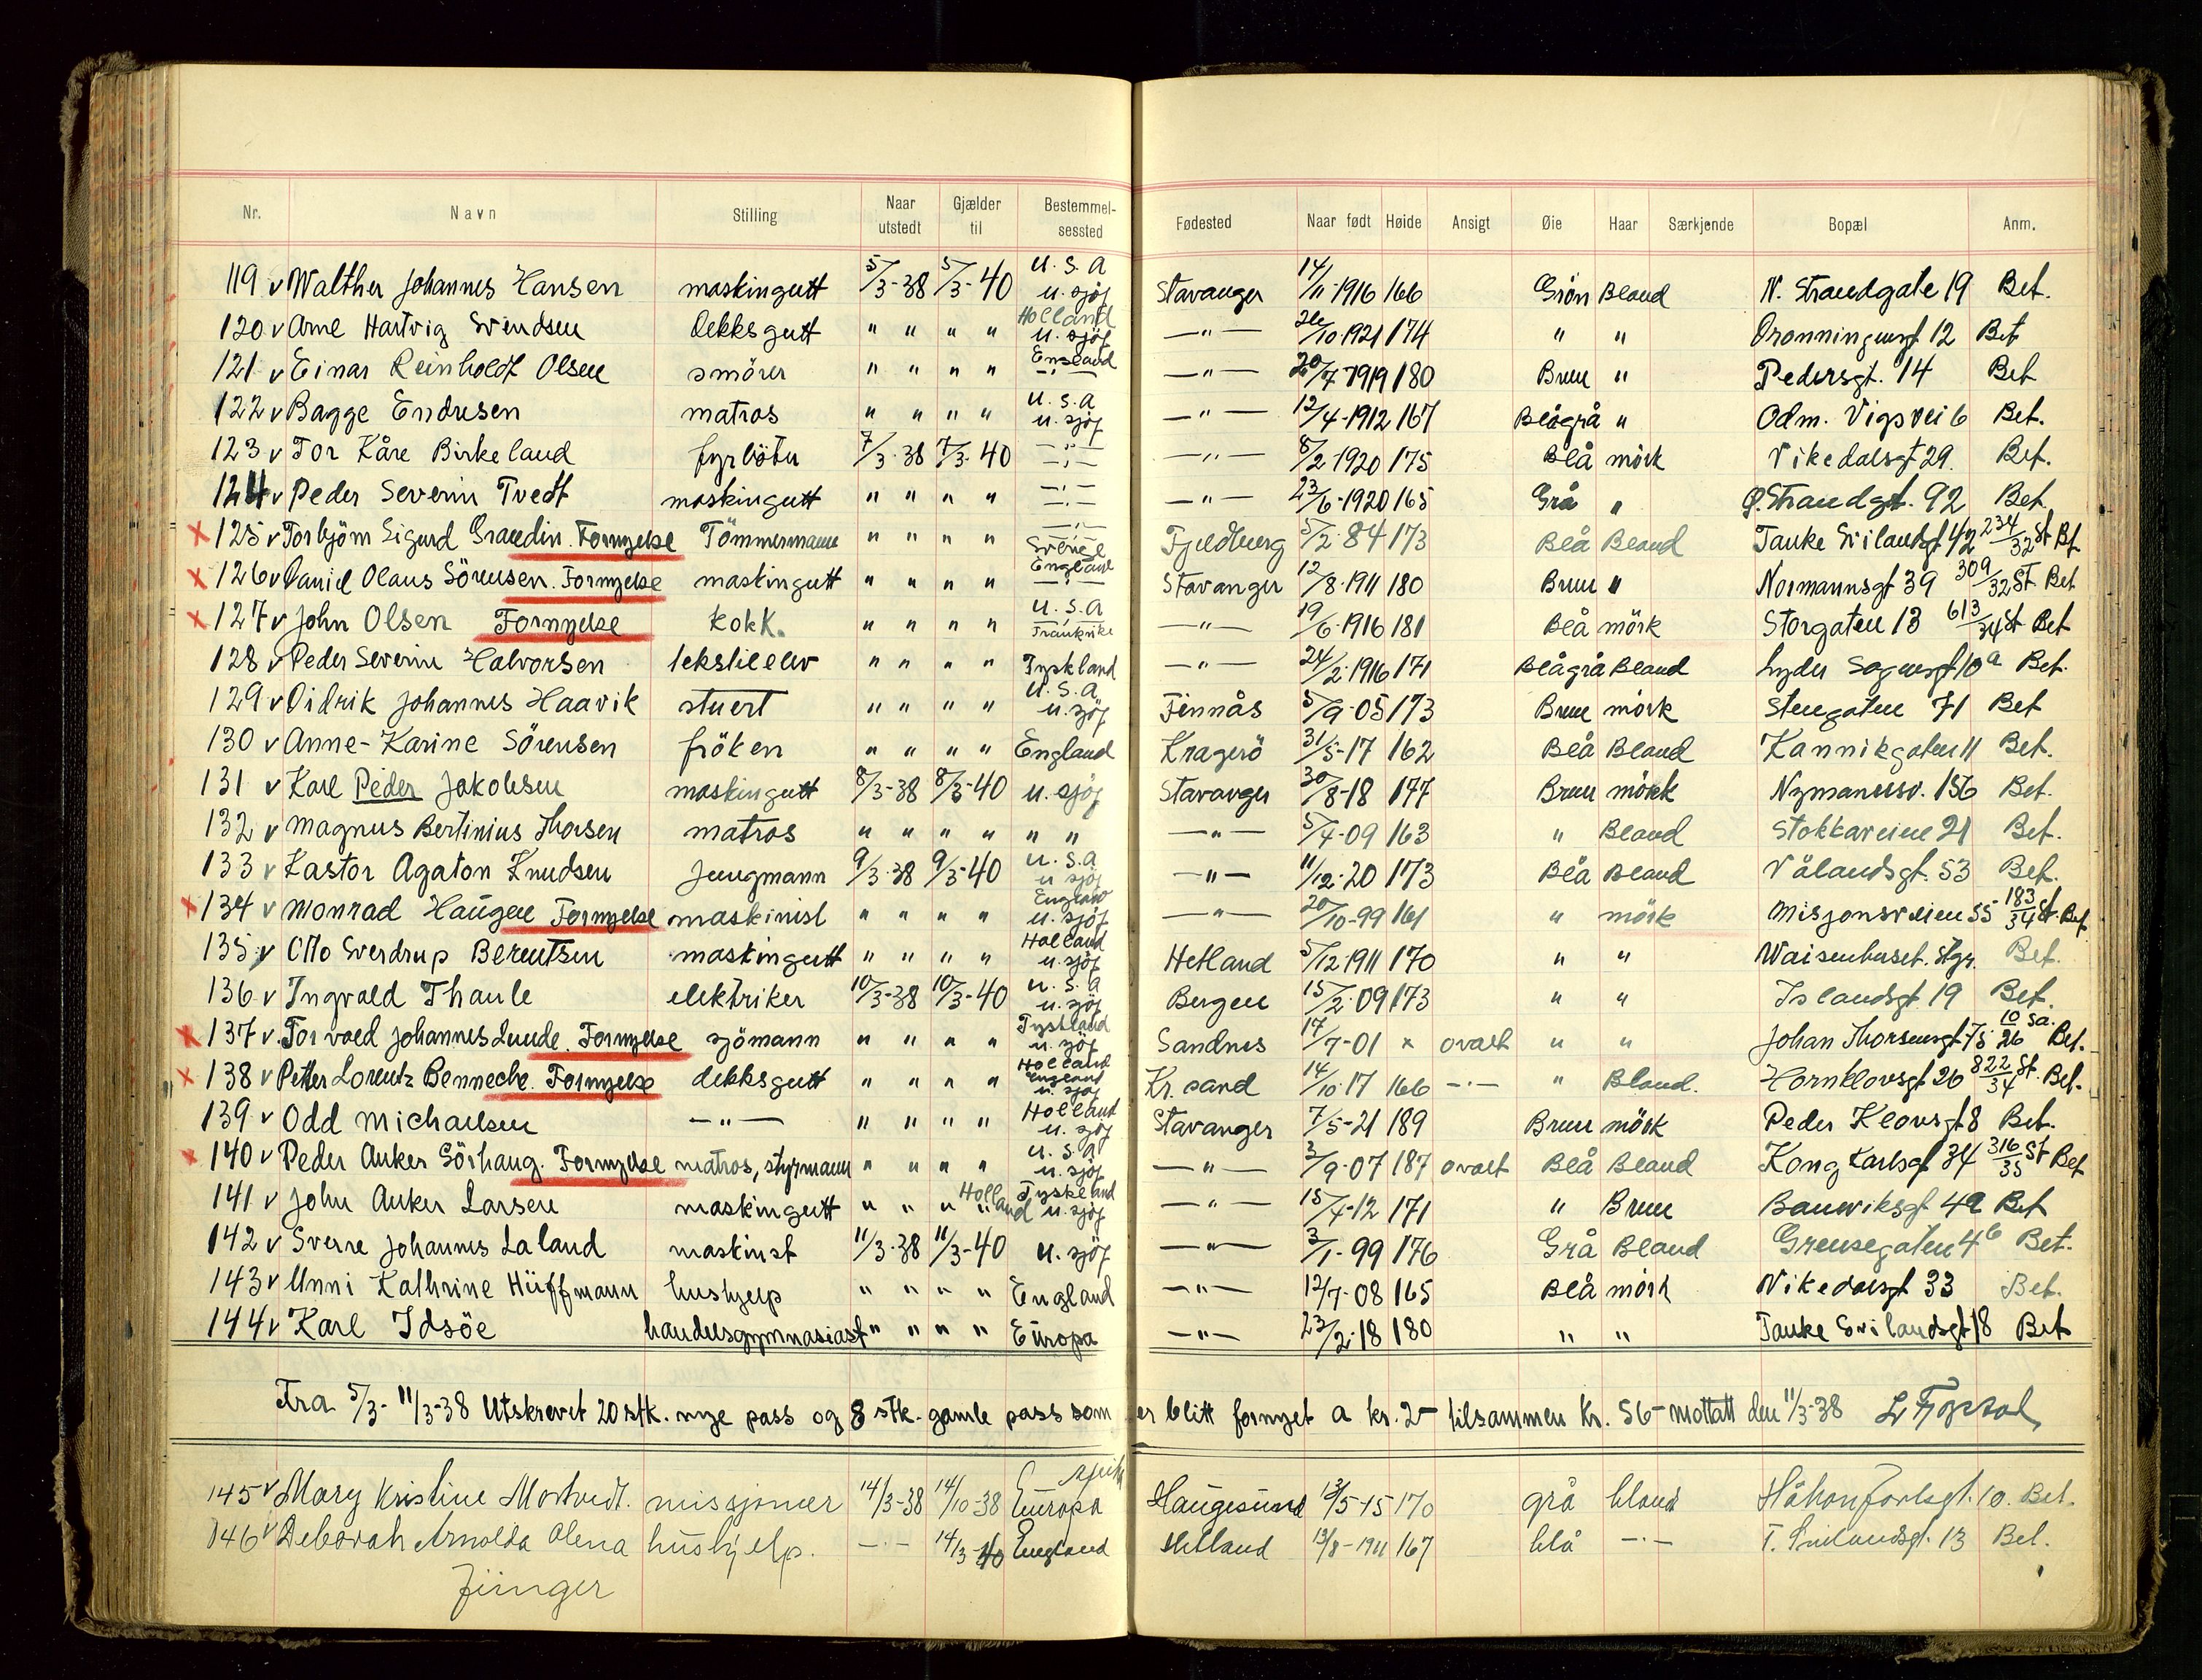 Nr. Navn Stilling Naar utstedt Gjælder til Bestemmelsessted Fødested Naar født Høide Ansigt Øie Haar Særkjende Bopæl Anm.
119 v Walther Johannes Hansen maskingutt 5/3-38 5/3-40 U.S.A u. sjöf Stavanger 14/11-1916 166 Grön Blond N. Strandgate 19 Bet.
120 v Arne Hartvig Svendsen dekksgutt " " " " Holland u. sjöf —"— 26/10-1921 174 " " Dronningensgt 12 Bet
121 v Einar Reinholdt Olsen smörer " " " " England —"— —"— 20/7-1919 180 Brun " Pedersgt. 14 Bet
122 v Bagge Endresen matros " " " " U.S.A u. sjöf —"— 12/4-1912 167 Blågrå " Adm. Vigsvei 6 Bet.
123 v Tor Kåre Birkeland fyrböter 7/3-38 7/3-40 —"— —"— 8/2-1920 175 Blå mörk Vikedalsgt 29. Bet.
124 v Peder Severin Tvedt maskingutt " " " " —"— —"— 23/6-1920 165 Grå " Ø. Strandgt. 92 Bet.
x 125 v Torbjörn Sigurd Grandin. Fornyelse Tömmermann " " " " —"— Sverige Fjeldberg 5/2-84 173 Blå Blond Tanke Svilandsgt 42 234/32 St Bt
x 126 v Daniel Olaus Sörensen. Fornyelse maskingutt " " " " England —"— Stavanger 12/8-1911 180 Brun " Normannsgt 39 309/32 St Bet
x 127 v John Olsen Fornyelse kokk. " " " " U.S.A —"— Frankrike —"— 19/6-1916 181 Blå mörk Storgaten 13 613/34 St Bet
128 v Peder Severin Halvorsen tekstilelev " " " " Tyskland —"— 24/2-1916 171 Blågrå Blond Lyder Sagensgt 10 a Bet.
129 v Didrik Johannes Haavik stuert " " " " U.S.A. u. sjöf Finnås 5/9-05 173 Brun mörk Stengaten 71 Bet
130 v Anne-Karine Sörensen fröken " " " " England Kragerö 31/5-17 162 Blå Blond Kannikgaten 11 Bet.
131 v Karl Peder Jakobsen maskingutt 8/3-38 8/3-40 u. sjöf Stavanger 30/8-18 177 Brun mörk Nymannsv. 156 Bet.
132 v Magnus Bertinius Thorsen matros " " " " " " —"— 5/4-09 163 " Blond Stokkaveien 21 Bet.
133 v Kastor Agaton Knudsen Jungmann 9/3-38 9/3-40 U.S.A u. sjöf —"— 11/12-20 173 Blå Blond Vålandsgt. 53 Bet.
x 134 v Monrad Haugen Fornyelse maskinist " " " " England u. sjöf —"— 20/10-99 161 " mörk Misjonsveien 55 183/34 St. Bet
135 v Otto Sverdrup Berentsen maskingutt " " " " Holland u. sjöf Hetland 5/12-1911 170 " " Waisenhuset. Stgr. Bet.
136 v Ingvald Thaule elektriker 10/3-38 10/3-40 U.S.A u. sjöf Bergen 15/2-09 173 " " Islandsgt 19 Bet.
x 137 v Torvald Johannes Lunde. Fornyelse sjömann " " " " Tyskland u. sjöf Sandnes 17/7-01 x ovalt " " Johan Thorsensgt 75 10/26 Sa. Bet.
x 138 v Petter Lorentz Benneche. Fornyelse dekksgutt " " " " Holland England u. sjöf Kr. sand 14/10-17 166 —"— " Blond. Hornklovsgt 26 822/34 St. Bet.
139 v Odd Michaelsen —"— " " " " Holland u. sjöf Stavanger 7/5-21 189 Brun mörk Peder Klowsgt 8 Bet.
x 140 v Peder Anker Sörhaug. Fornyelse matros, styrmann " " " " U.S.A u. sjöf —"— 3/9-07 187 ovalt Blå Blond Kong Karlsgt 34 316/35 St Bet
141 v John Anker Larsen maskingutt " " " " Holland Tyskland u. sjöf —"— 15/4-12 171 " Brun Baneviksgt 49 Bet
142 v Sverre Johannes Laland maskinst 11/3-38 11/3-40 u. sjöf —"— 3/1-99 176 Grå Blond Grensegaten 4 b Bet.
143 v Unni Kathrine Hüffmann hushjelp " " " " England —"— 12/7-08 165 Blå mörk Vikedalsgt 33 Bet.
144 v Karl Idsöe handelsgymnasiast " " " " Europa —"— 23/2-18 180 " " Tanke Svilandsgt 18 Bet
Fra 5/3- 11/3-38 Utskrevet 20 stk. nye pass og 8 stk. gamle pass som er blitt fornyet a kr. 2- tilsammen kr. 56- mottatt den 11/3-38
145 v Mary Kristine Mortvedt. missjonær 14/3-38 14/10-38 Europa Haugesund 13/5-15 170 grå blond Håkon Jarlsgt. 10. Bet.
146 v Deborah Arnolda Olena hushjelp. —"— 14/3-40 England Hetland 13/8-1911 167 blå —"— T. Svilandsgt. 13 Bet.
Jünger